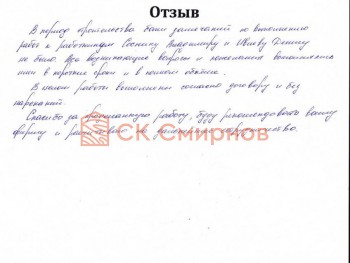 Отзыв
В период строительства были замечаний по выполнению
работ к работникам Соснину Владимиру и Денису
не было. Все возникающие вопросы и пожелания выполнялись
ими в короткие сроки и в полном объеме.
В целом работы выполнены согласно договору и без
нареканий.
Спасибо за проделанную работу, буду рекомендовать вашу
фирму и рассчитываю на дальнейшее сотрудничество.
СК.Смирнов